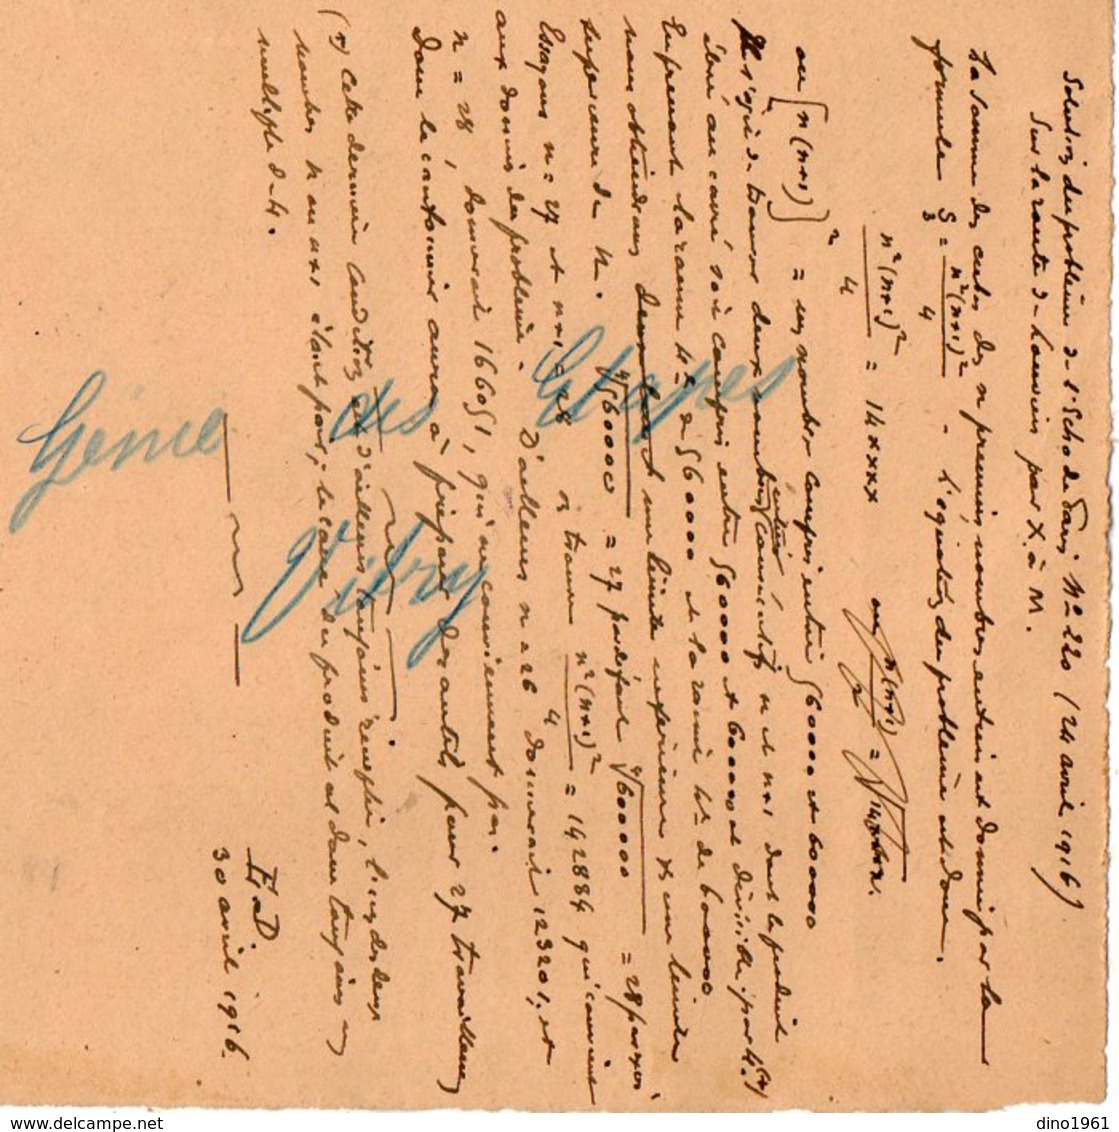 Solution du problème de l'Echo de Paris N° 220 (24 avril 1916)
Sur la route de Louviers par X. à M.
La somme des cubes des n premiers nombres entiers est donnée par la
formule S₃ = n²(n+1)²/4 . L'équation du problème est donc.
n²(n+1)²/4 = 14xxxx ou n(n+1)/2 = √14xxxx.
ou [n(n+1)]² = un nombre compris entre 560000 et 600000
Il s'agit de trouver deux nombres entiers consécutifs n et n+1 dont le produit
élevé au carré, soit compris entre 560000 et 600000 et divisible par 4.(*)
En prenant la racine 4e de 560000 et la racine 4e de 600000
nous obtiendrons une limite inférieure et une limite
supérieure de n. ⁴√560000 = 27 par défaut ⁴√600000 = 28 par excès.
Essayons n = 27 et n+1 = 28 on trouve n²(n+1)²/4 = 142884 qui convient
aux données du problème. D'ailleurs n = 26 donnerait 123201, et
n = 28, donnerait 166051, qui ne conviennent pas.
Donc le cantonnier aura à préparer des outils pour 27 travailleurs
(*) Cette dernière condition est d'ailleurs toujours remplie, l'un des deux
nombres n ou n+1 étant pair, le carré du produit est donc toujours un
multiple de 4.
E.D
30 avril 1916.
Génie des Etapes
Vitry
dino1961